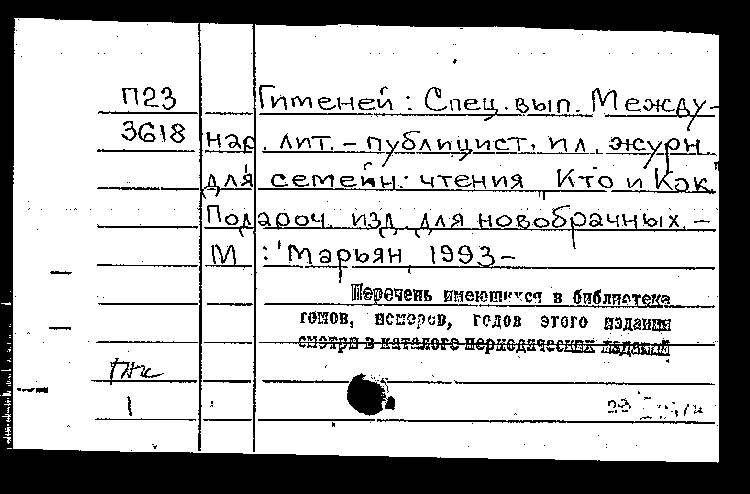 П23 Гименей : Спец. вып. Между-
3618 нар. лит. – публицист. ил. журн.
для семейн. чтения "Кто и Как."
Подароч. изд. для новобрачных. –
М : Марьян, 1993–
Перечень имеющихся в библиотеке
томов, номеров, годов этого издания
смотри в каталоге периодических изданий
1